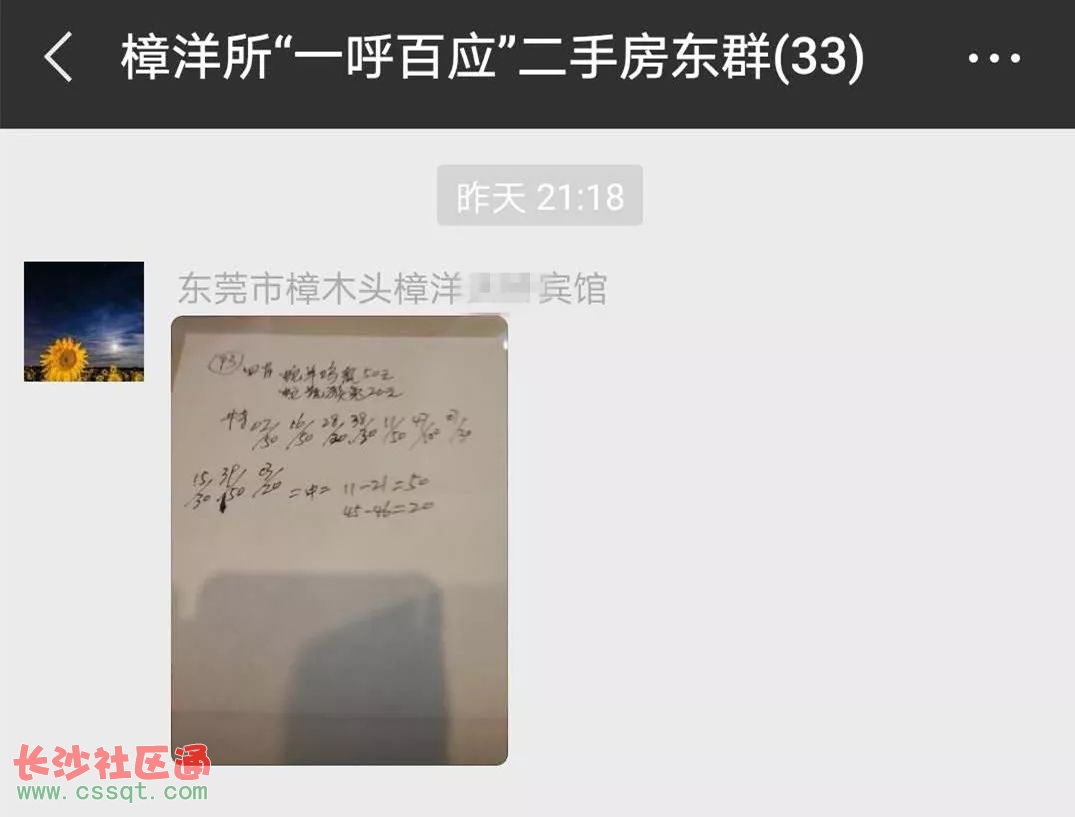 樟洋所“一呼百应”二手房东群(33)
昨天 21:18
东莞市樟木头樟洋 宾馆
(93) 四肖 蛇羊鸡 50元
蛇 20元
特
/50 16/50 28/20 38/30 11/50
15/30 39/50 03/20 二中二 11-21=50
45-46=20
长沙社区通
www.cssqt.com